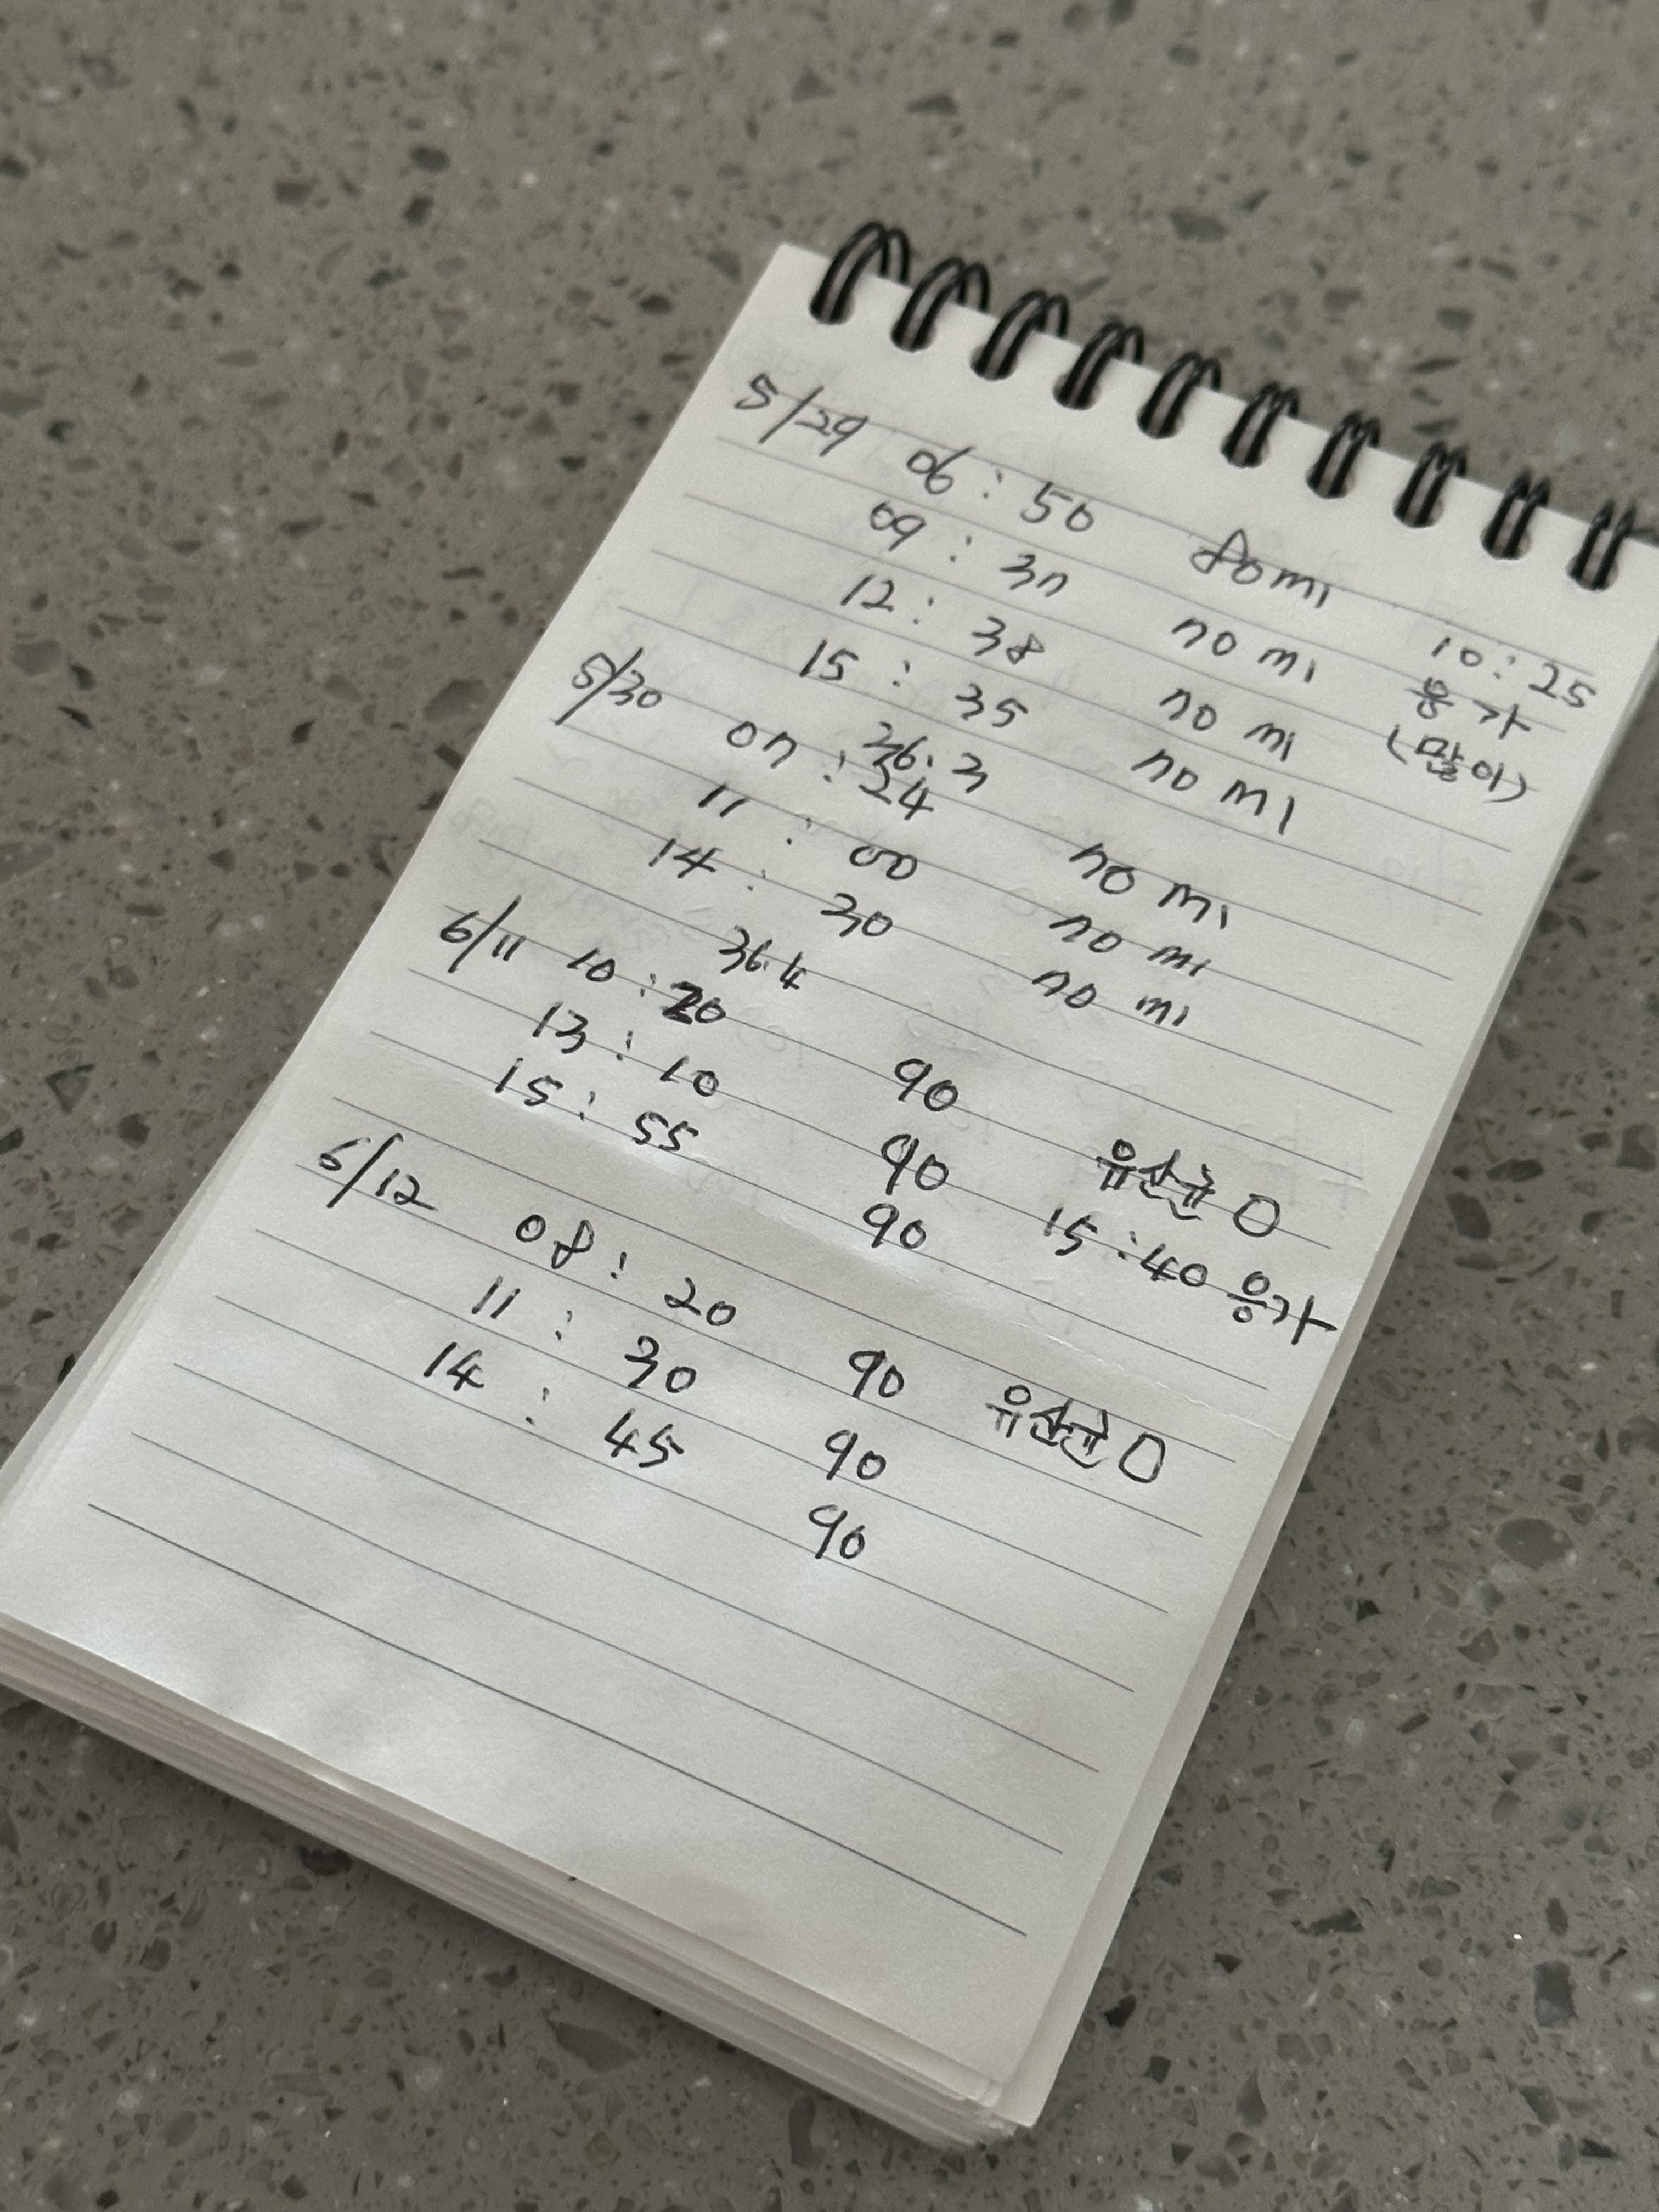 5/29 06:50 80ml 10:25
09:37 70 ml 응가
12:38 70 ml (많이)
15:35 70 ml
36.3
5/30 07:24 70 ml
11:00 70 ml
14:30 70 ml
36.4
6/11 10:20 90 유산균 O
13:10 90 15:40 응가
15:55 90
6/12 08:20 90 유산균 O
11:30 90
14:45 90